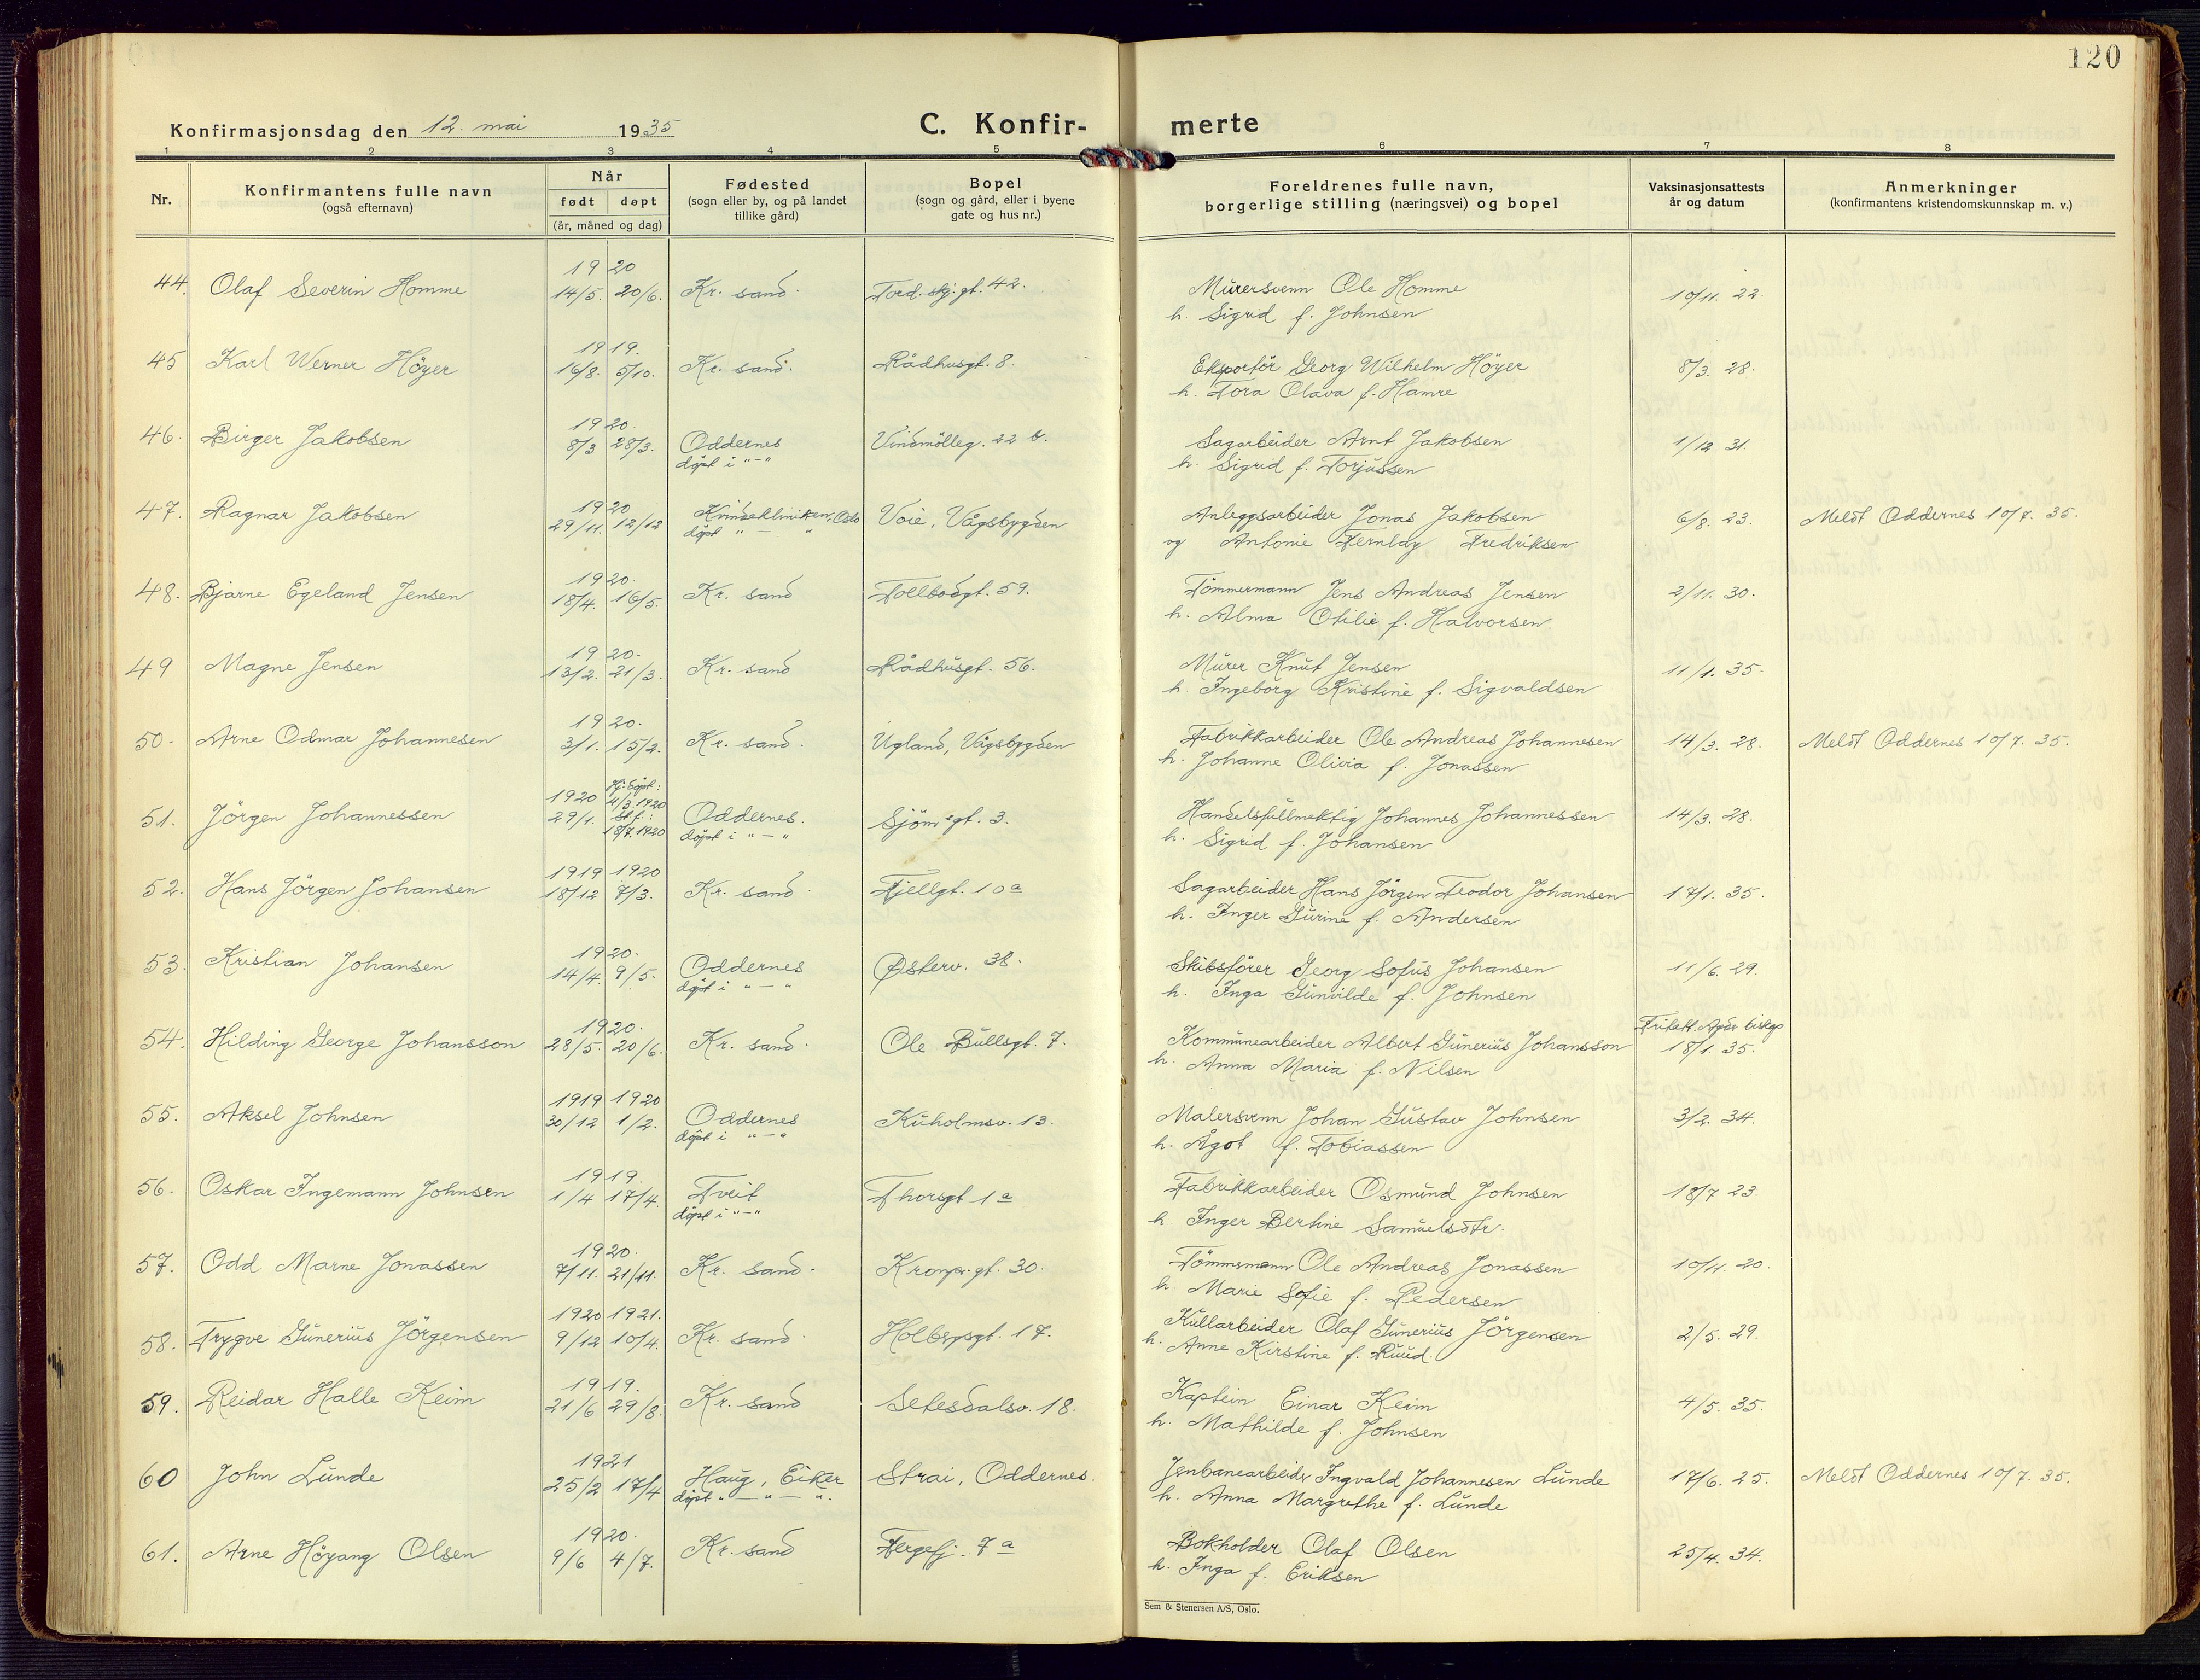 120
Konfirmasjonsdag den 12. mai 1935
C. Konfir- merte
1 2 3 4 5 6 7 8
Nr.
Konfirmantens fulle navn
(også efternavn)
Når
født døpt
(år, måned og dag)
Fødested
(sogn eller by, og på landet
tillike gård)
Bopel
(sogn og gård, eller i byene
gate og hus nr.)
Foreldrenes fulle navn,
borgerlige stilling (næringsvei) og bopel
Vaksinasjonsattests
år og datum
Anmerkninger
(konfirmantens kristendomskunnskap m. v.)
1920
44. Olaf Severin Homme 14/5. 20/6. Kr. sand. Tord. skj. gt. 42. Murersvenn Ole Homme 10/11. 22.
h. Sigrid f. Johnsen
1919.
45 Karl Werner Höyer 16/8. 5/10. Kr. sand. Rådhusgt. 8. Eksportör Georg Wilhelm Höyer 8/3. 28.
h. Tora Olava f. Hamre
1920.
46. Birger Jakobsen 8/3 28/3. Oddernes Vindmölleg. 22 b. Sagarbeider Arnt Jakobsen 1/12 31.
döpt i "-" h. Sigrid f. Torjussen
1920
47. Ragnar Jakobsen 29/11. 12/12 Kvindeklinikken, Oslo Voie, Vågsbygden Anleggsarbeider Jonas Jakobsen 6/8. 23. Meldt Oddernes 10/7. 35.
döpt " — " og Antonie Fernlay Fredriksen
1920.
48. Bjarne Egeland Jensen 18/4. 16/5. Kr. sand Tollbodgt. 59. Tömmermann Jens Andreas Jensen 2/11. 30.
h. Alma Otilie f. Halvorsen
1920.
49 Magne Jensen 13/2. 21/3. Kr. sand Rådhusgt. 56. Murer Knut Jensen 11/1. 35.
h. Ingeborg Kristine f. Sigvaldsen
1920.
50. Arne Odmar Johannesen 3/1. 15/2. Kr. sand. Ugland, Vågsbygden Fabrikkarbeider Ole Andreas Johannesen 14/3. 28. Meldt Oddernes 10/7. 35.
h. Johanne Olivia f. Jonassen
Hj. döpt:
1920 4/3. 1920
51. Jörgen Johannessen 29/1. St. f.: Oddernes. Sjömsgt. 3. Handelsfullmektig Johannes Johannessen 14/3. 28.
18/7. 1920 döpt i "—" h. Sigrid f. Johansen
1919 1920
52. Hans Jörgen Johansen 18/12 7/3. Kr. sand. Fjellgt. 10a Sagarbeider Hans Jörgen Teodor Johansen 17/1. 35.
h. Inger Gurine f. Andersen
1920.
53. Kristian Johansen 14/4. 9/5. Oddernes Østerv. 38. Skibsförer Georg Sofus Johansen 11/6. 29.
döpt i "—" h. Inga Gunvilde f. Johnsen
1920. Fritatt. Agder biskop
54. Hilding George Johansson 28/5. 20/6. Kr. sand. Ole Bullsgt. 7. Kommunearbeider Albert Gunerius Johansson 18/1. 35.
h. Anna Maria f. Nilsen
1919 1920
55. Aksel Johnsen 30/12 1/2. Oddernes Kuholmsv. 13. Malersvenn Johan Gustav Johnsen 3/2. 34.
döpt i "—" h. Ågot f. Tobiassen
1919.
56. Oskar Ingemann Johnsen 1/4 17/4. Tveit Thorsgt 1a Fabrikkarbeider Osmund Johnsen 18/7 23.
döpt i "—" h Inger Bertine Samuelsdtr.
1920.
57. Odd Marne Jonassen 7/11. 21/11. Kr. sand. Kronpr. gt. 30. Tömmsmann Ole Andreas Jonassen 10/11. 20.
h. Marie Sofie f. Pedersen
1920 1921.
58. Trygve Gunerius Jörgensen 9/12 10/4. Kr. sand. Holbergsgt. 17. Kullarbeider Olaf Gunerius Jörgensen 2/5. 29.
h. Anne Kirstine f. Ruud.
1919.
59. Reidar Halle Keim 21/6 29/8. Kr. sand Setesdalsv. 18. Kaptein Einar Keim 4/5. 35.
h. Mathilde f. Johnsen
1921
60 John Lunde 25/2 17/4 Haug, Eiker Strai, Oddernes. Jernbanearbeider Ingvald Johannesen Lunde 17/6. 25. Meldt Oddernes 10/7. 35.
döpt " — " — ". h. Anna Margrethe f. Lunde
1920.
61. Arne Höyang Olsen 9/6 4/7. Kr. sand Fergefj. 7a Bokholder Olaf Olsen 25/4. 34.
h. Inga f. Eriksen
Sem & Stenersen A/S, Oslo.